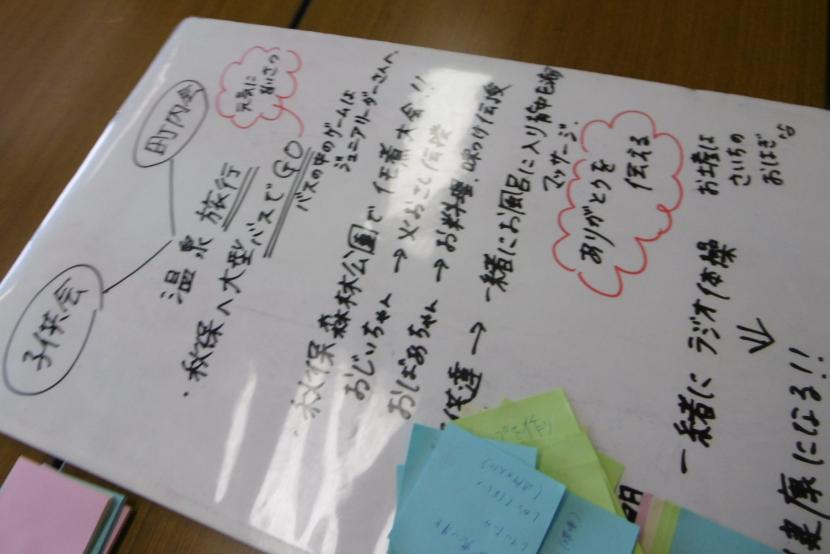 子供会
町内会
元気に
あいさつ
温泉旅行
・秋保へ大型バスでGO
バスの中のゲームは
ジュニアリーダーさんへ
・秋保森林公園で 仮装大会!!
おじいちゃん → 火おこし伝授
おばあちゃん → お料理、味つけ伝授
供達 → 一緒にお風呂に入り背中
マッサージ.
ありがとうを
伝える
お土産は
さいちの
おはぎ
一緒に ラジオ体操
健康になる!!